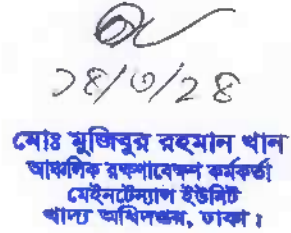 ১৪/৩/২৪
মোঃ মুজিবুর রহমান খান
আঞ্চলিক রক্ষণাবেক্ষণ কর্মকর্তা
মেইনটেন্যান্স ইউনিট
খাদ্য অধিদপ্তর, ঢাকা।